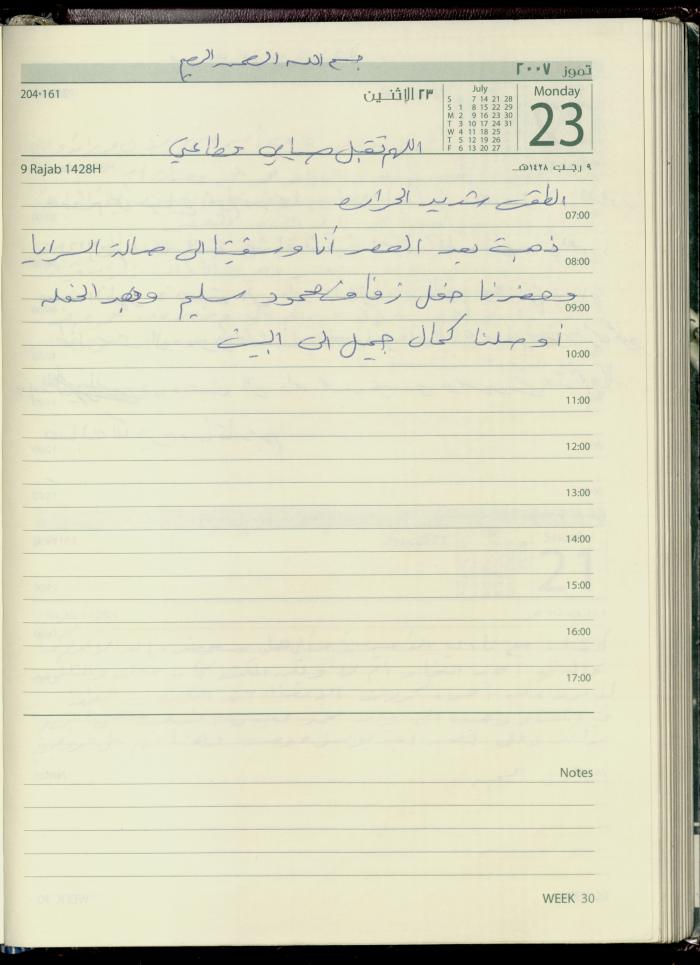 بسم الله الرحمن الرحيم
تموز ٢٠٠٧
204-161
٢٣ الإثنين
July
S 7 14 21 28
S 1 8 15 22 29
M 2 9 16 23 30
T 3 10 17 24 31
W 4 11 18 25
T 5 12 19 26
F 6 13 20 27
Monday
23
اللهم تقبل صيامي وطاعتي
9 Rajab 1428H
٩ رجب ١٤٢٨هـ
الطقس شديد الحرارة
07:00
ذهبت بعد العصر أنا و الى صالة السرايا
08:00
وحضرنا حفل زفاف محمود سليم وبعد الحفله
09:00
أوصلنا كمال جميل الى البيت
10:00
11:00
12:00
13:00
14:00
15:00
16:00
17:00
Notes
WEEK 30